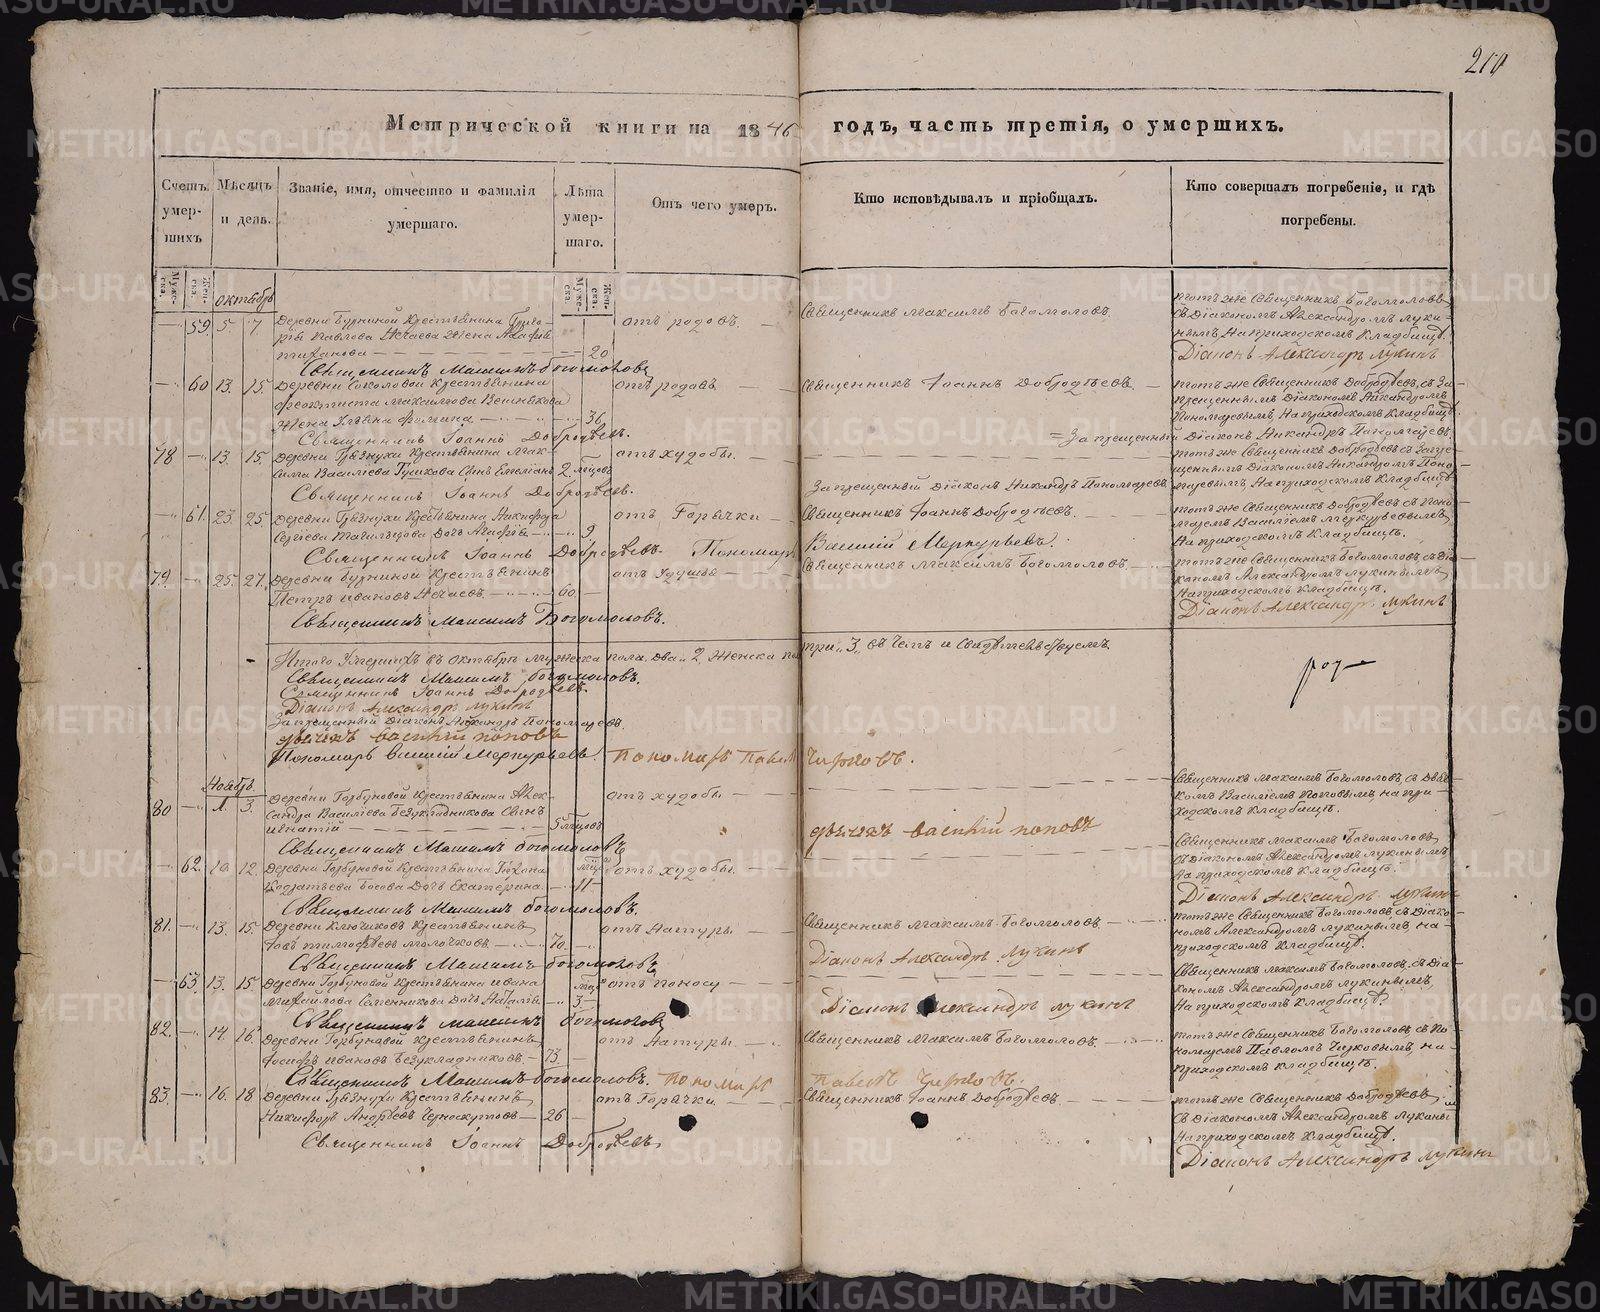 210
Метрической книги на 1846 годъ, часть третія, о умершихъ.
Счетъ умерших
Мѣсяцъ и день.
Званіе, имя, отчество и фамилія умершаго.
Лѣта умершаго.
Отъ чего умеръ.
Кто исповѣдывалъ и пріобщалъ.
Кто совершалъ погребеніе, и гдѣ погребены.
Муже-ска.
Жен-ска.
Муже-ска.
Жен-ска.
октябрь
59. 5. 7. Деревни Бурниной Крестьянина
Павлова Нечаева Жена
20
отъ родовъ.
Священникъ Максимъ Богомоловъ.
тотъ же Священникъ Богомоловъ
съ Діакономъ Александромъ Луки-
нымъ на приходскомъ Кладбищѣ.
Діаконъ Александръ Лукинъ
Священникъ Максимъ Богомоловъ
60 13. 15. Деревни Соколовой Крестьянина
Феоктиста Максимова
Жена Ульяна Фомина
36.
отъ родовъ
Священникъ Іоаннъ Добродѣевъ.
тотъ же Священникъ Добродѣевъ, съ За-
прещеннымъ Діакономъ Никандромъ
Пономаревымъ на приходскомъ Кладбищѣ.
Священникъ Іоаннъ Добродѣевъ.
Запрещенный Діаконъ Никандръ Пономаревъ.
78 13. 15. Деревни Грязнухи Крестьянина Мак-
сима Василіева Сынъ Емеліанъ
2 мѣсяцовъ
отъ худобы.
тотъ же Священникъ Добродѣевъ съ Запре-
щеннымъ Діакономъ Никандромъ Поно-
маревымъ, на приходскомъ Кладбищѣ
Священникъ Іоаннъ Добродѣевъ.
Запрещенный Діаконъ Никандръ Пономаревъ
61. 23. 25. Деревни Грязнухи Крестьянина Никифора
Сергіева Дочь Агафія
9.
отъ Горячки
Священникъ Іоаннъ Добродѣевъ.
тотъ же Священникъ Добродѣевъ съ Поно-
маремъ Василіемъ Меркурьевымъ,
на приходскомъ Кладбищѣ.
Священникъ Іоаннъ Добродѣевъ. Пономарь Василій Меркурьевъ.
79. 25. 27. Деревни Бурниной Крестьянинъ
Петръ Ивановъ Нечаевъ
60.
отъ Удушья
Священникъ Максимъ Богомоловъ,
тотъ же Священникъ Богомоловъ, съ Діа-
кономъ Александромъ Лукинымъ,
на приходскомъ Кладбищѣ.
Діаконъ Александръ Лукинъ
Священникъ Максимъ Богомоловъ.
Итого Умершихъ въ октябрѣ мужеска пола, два „2, Женска пол. три „3, въ чемъ и Свидѣтельствуемъ.
Священникъ Максимъ Богомоловъ.
Священникъ Іоаннъ Добродѣевъ.
Діаконъ Александръ Лукинъ
Запрещенный Діаконъ Никандръ Пономаревъ
дьячекъ василій поповъ
Пономарь Василій Меркурьевъ. Пономарь Павелъ Чирковъ.
Ноябрь
80 1. 3. Деревни Горбуновой Крестьянина Алек-
сандра Василіева Безукладникова Сынъ
Игнатій
5 мѣсяцовъ
отъ худобы
Священникъ Максимъ Богомоловъ, съ Дьяч-
комъ Василіемъ Поповымъ, на при-
ходскомъ Кладбищѣ.
дьячекъ василій поповъ
Священникъ Максимъ Богомоловъ
62. 10 12. Деревни Горбуновой Крестьянина
Босова Дочь Екатерина
11
отъ худобы.
Священникъ Максимъ Богомоловъ
съ Діакономъ Александромъ Лукинымъ
на приходскомъ Кладбищѣ.
Діаконъ Александръ Лукинъ
Священникъ Максимъ Богомоловъ.
81. 13. 15 Деревни Ключиковъ Крестьянинъ
Іовъ Тимофѣевъ Молочковъ
70.
отъ Натуры.
Священникъ Максимъ Богомоловъ
тотъ же Священникъ Богомоловъ, съ Діако-
номъ Александромъ Лукинымъ, на-
приходскомъ Кладбищѣ.
Діаконъ Александръ Лукинъ
Священникъ Максимъ Богомоловъ
63. 13. 15 Деревни Горбуновой Крестьянина Ивана
Михайлова Дочь Наталія
3
отъ поносу
Священникъ Максимъ Богомоловъ, съ Діа-
кономъ Александромъ Лукинымъ,
на приходскомъ Кладбищѣ.
Діаконъ Александръ Лукинъ
Священникъ Максимъ Богомоловъ
82. 14. 16. Деревни Горбуновой Крестьянинъ
Іосифъ Ивановъ Безукладниковъ
73.
отъ Натуры.
Священникъ Максимъ Богомоловъ.
тотъ же Священникъ Богомоловъ, съ По-
номаремъ Павломъ Чирковымъ, на
приходскомъ кладбищѣ.
Священникъ Максимъ Богомоловъ. Пономарь Павелъ Чирковъ.
83. 16. 18 Деревни Грязнухи Крестьянинъ
Никифоръ Андреевъ
26
отъ Горячки.
Священникъ Іоаннъ Добродѣевъ
тотъ же Священникъ Добродѣевъ
съ Діакономъ Александромъ Лукинымъ
на приходскомъ Кладбищѣ.
Діаконъ Александръ Лукинъ
Священникъ Іоаннъ Добродѣевъ
METRIKI.GASO-URAL.RU